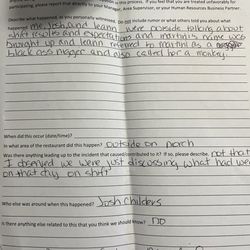 participating, please report that directly to your Manager, Area Supervisor, or your Human Resources Business Partner.
Describe what happened, as you personally witnessed. Do not include rumor or what others told you about what
happened. me, Josh, and leann were outside talking about
shift results and expectations and martini's name was
brought up and leann referred to martini as a
black ass nigger and also called her a monkey.
When did this occur (date/time)?
In what area of the restaurant did this happen? outside on porch
Was there anything leading up to the incident that caused/contributed to it? If so, please describe. not that
I observed we were just discussing what had went
on that day on shift
Who else was around when this happened? Josh Childers
Is there anything else related to this that you think we should know? no